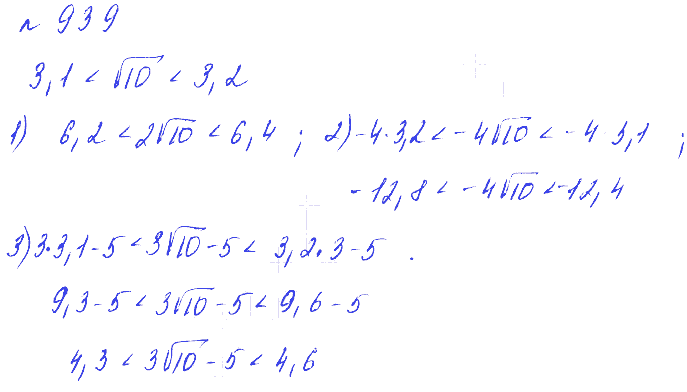 № 939
3,1 < √10 < 3,2
1) 6,2 < 2√10 < 6,4 ; 2) -4·3,2 < -4√10 < -4·3,1 ;
-12,8 < -4√10 < -12,4
3) 3·3,1-5 < 3√10-5 < 3,2·3-5 .
9,3-5 < 3√10-5 < 9,6-5
4,3 < 3√10-5 < 4,6